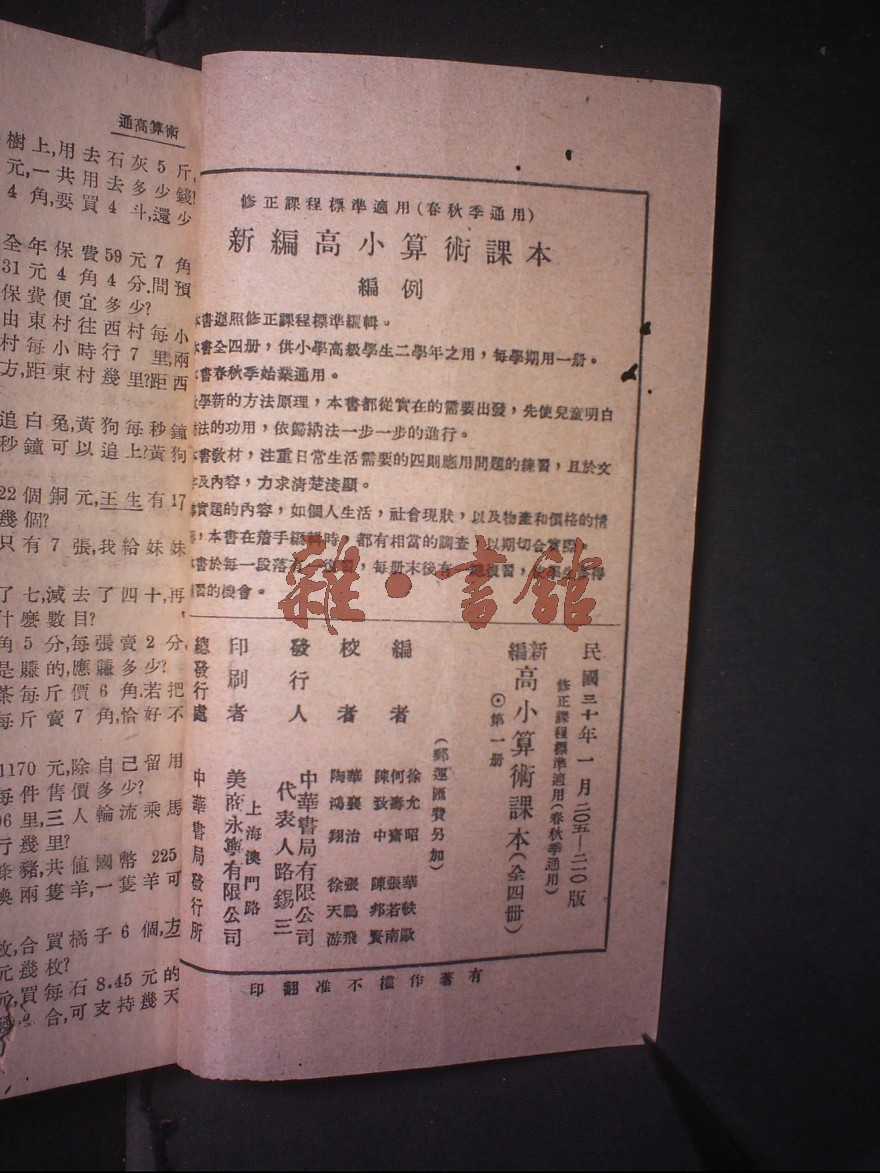 通高算術
樹上,用去石灰5斤,
元,一共用去多少錢!
4角,要買4斗,還少
全年保費59元7角
31元4角4分.問預
保費便宜多少?
由東村往西村每小
村每小時行7里,兩
方,距東村幾里?距西
追白兔,黃狗每秒鐘
秒鐘可以追上?黃狗
22個銅元,王生有17
幾個?
只有7張,我給妹妹
了七,減去了四十,再
什麼數目?
角5分,每張賣2分,
是賺的,應賺多少?
茶每斤價6角.若把
每斤賣7角,恰好不
1170元,除自己留用
每件售價多少?
06里,三人輪流乘馬
行幾里?
條豬,共值國幣225
換兩隻羊,一隻羊可
枚,合買橘子6個,方
元幾枚?
元,買每石8.45元的
合,可支持幾天
修正課程標準適用(春秋季通用)
新編高小算術課本
編例
本書遵照修正課程標準編輯。
本書全四册,供小學高級學生二學年之用,每學期用一册。
本書春秋季始業通用。
教學新的方法原理,本書都從實在的需要出發,先使兒童明白
法的功用,依歸納法一步一步的進行。
本書教材,注重日常生活需要的四則應用問題的練習,且於文
字及內容,力求清楚淺顯。
實題的內容,如個人生活,社會現狀,以及物產和價格的情
,本書在着手編輯時,都有相當的調查,以期切合實際。
本書於每一段落有一複習,每册末後有一總複習,使學生多得
習的機會。
雜·書館
民國三十年一月二〇五—二一〇版
修正課程標準適用(春秋季通用)
新編高小算術課本(全四冊)
⊙第一册
(郵運匯費另加)
編者
徐允昭 華軼歐
何壽齋 張若南
陳致中 陳邦賢
校者
華襄治 張鵬飛
陶鴻翔 徐天游
發行人
中華書局有限公司
代表人路錫三
印刷者
上海澳門路
美商永寧有限公司
總發行處
中華書局發行所
有著作權不准翻印